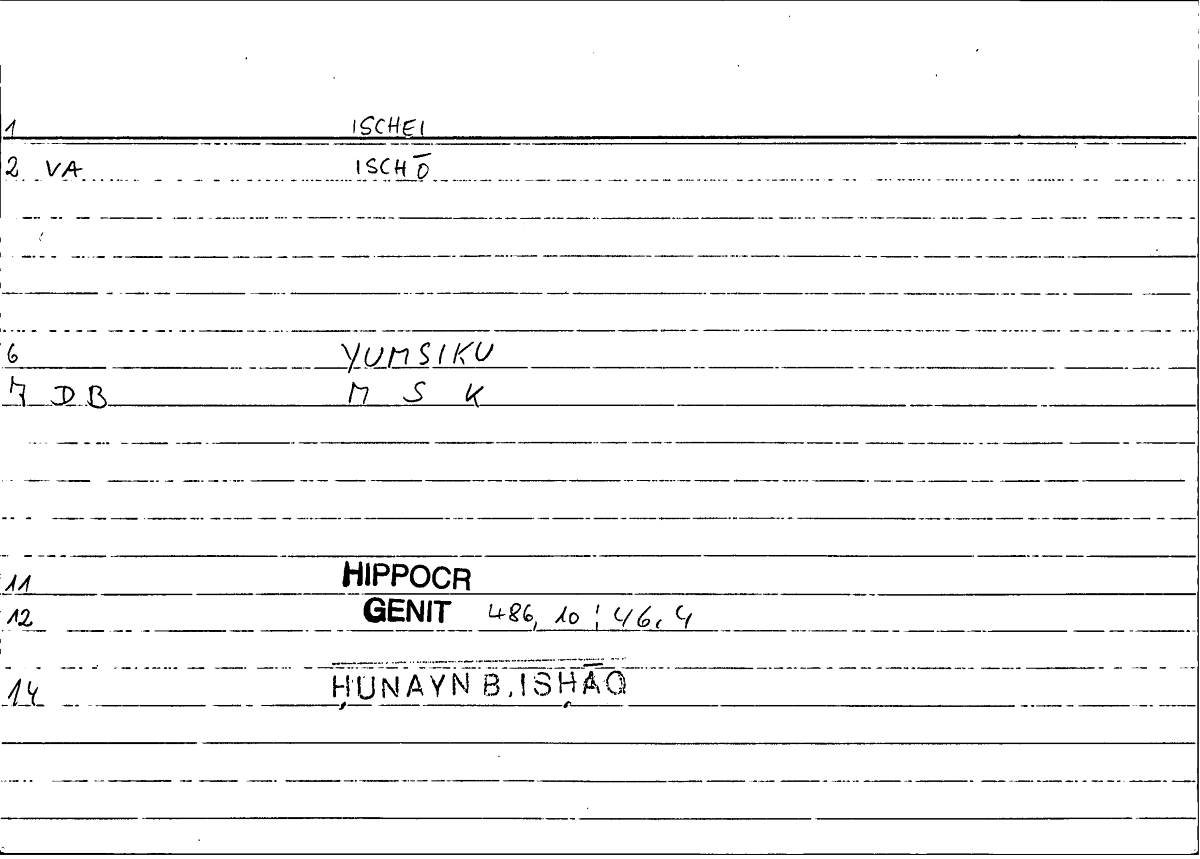 1 ISCHEI
2 VA ISCHŌ
6 YUMSIKU
7 DB M S K
11 HIPPOCR
12 GENIT 486, 10 ; 46, 4
14 ḤUNAYN B. ISḤĀQ